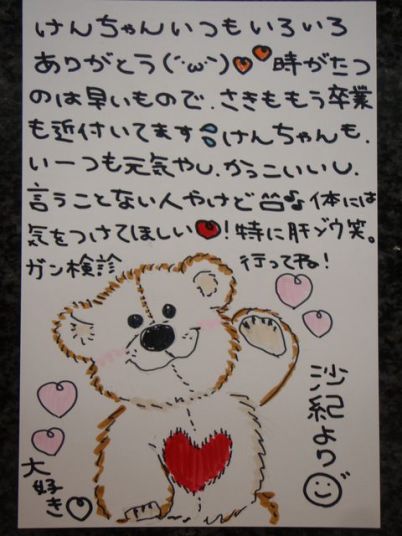 けんちゃんいつもいろいろ
ありがとう(˙ω˙)時がたつ
のは早いもので、さきももう卒業
も近付いてます けんちゃんも、
いーつも元気やし、かっこいいし、
言うことない人やけど 体には
気をつけてほしい!特に肝ゾウ笑。
ガン検診 行ってね!
沙紀より
大好き